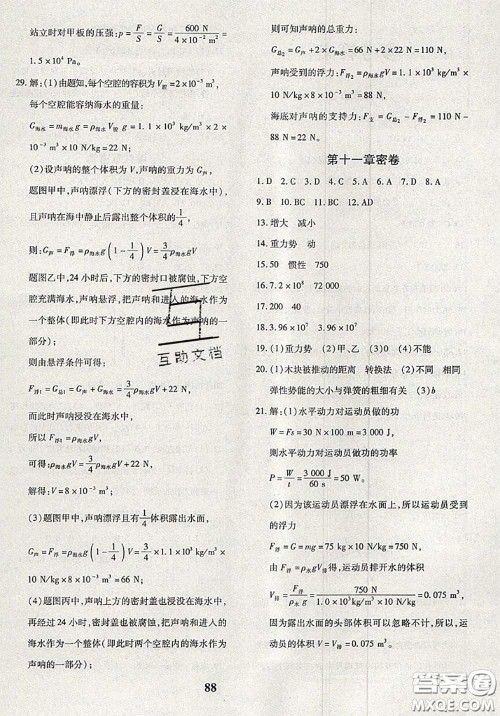 站立时对甲板的压强:p=F/S=G/S=600/(4×10⁻²) N/m²=
1.5×10⁴ Pa。
29.解:(1)由题知,每个空腔的容积为V腔=2×10⁻³ m³,
每个空腔能容纳海水的重量:
G海水=m海水g=ρ海水V腔g=1.1×10³ kg/m³×2×
10⁻³ m³×10 N/kg=22 N;
(2)设声呐的整个体积为V,声呐的重力为G声,
题图甲中,声呐漂浮(下方的密封盖浸在海水中),
且声呐在海中静止后露出整个体积的1/4,
则:G声=F浮=ρ海水g(1-1/4)V=3/4ρ海水gV,
题图乙中,24小时后,下方的密封口被腐蚀,下方空
腔充满海水,声呐悬浮,把声呐和进入的海水作为
一个整体(即此时下方空腔内的海水作为声呐的一
部分);
则由悬浮条件可得:
F浮1=G总1=G声+G海水=3/4ρ海水gV+22 N,
而此时声呐浸没在海水中,
所以F浮1=ρ海水gV
可得:ρ海水gV=3/4ρ海水gV+22 N,
解得:V=8×10⁻³ m³;
(3)题图甲中,声呐漂浮且有1/4体积露出水面,
G声=F浮=ρ海水g(1-1/4)V=3/4×1.1×10³ kg/m³
×10 N/kg×8×10⁻³ m³=66 N;
(4)题图丙中,声呐上方的密封盖也浸没在海水中,
再经过24小时,上方的密封口被腐蚀,把声呐和进
入的海水作为一个整体(即此时两个空腔内的海水作为
声呐的一部分);
则可知声呐的总重力:
G总2=G声+2G海水=66 N+2×22 N=110 N,
声呐受到的浮力:F浮2=ρ海水gV=1.1×10³ kg/m³×
10 N/kg×8×10⁻³ m³=88 N,
海底对声呐的支持力:F支=G总2-F浮2=110 N-
88 N=22 N。
第十一章密卷
1.D 2.C 3.D 4.C 5.A 6.A 7.D 8.A
9.D 10.BC 11.BC 12.AD
13.增大 减小
14.重力势 动
15.50 惯性 750
16.7.2×10⁸ 72 000
17.200 40
18.3.96×10⁷ 3.96×10⁷
19.(1)重力势 (2)甲、乙 (3)0 (4)不能
20.(1)木块被推动的距离 转换法 (2)不同 相同
弹性势能的大小与弹簧的粗细有关 (3)b
21.解:(1)水平动力对运动员做的功
W=Fs=30 N×100 m=3 000 J,
则水平动力对运动员做功的功率
P=W/t=3 000 J/60 s=50 W。
(2)因为该运动员漂浮在水面上,所以运动员受到
的浮力
F浮=G=mg=75 kg×10 N/kg=750 N,
由F浮=ρ水gV排得,运动员排开水的体积
V排=F浮/(ρ水g)=750 N/(1.0×10³ kg/m³×10 N/kg)=0.075 m³,
因为露出水面的头部体积可以忽略不计,所以运
动员的体积V=V排=0.075 m³。
88
互助文档
答案圈
MXQE.COM